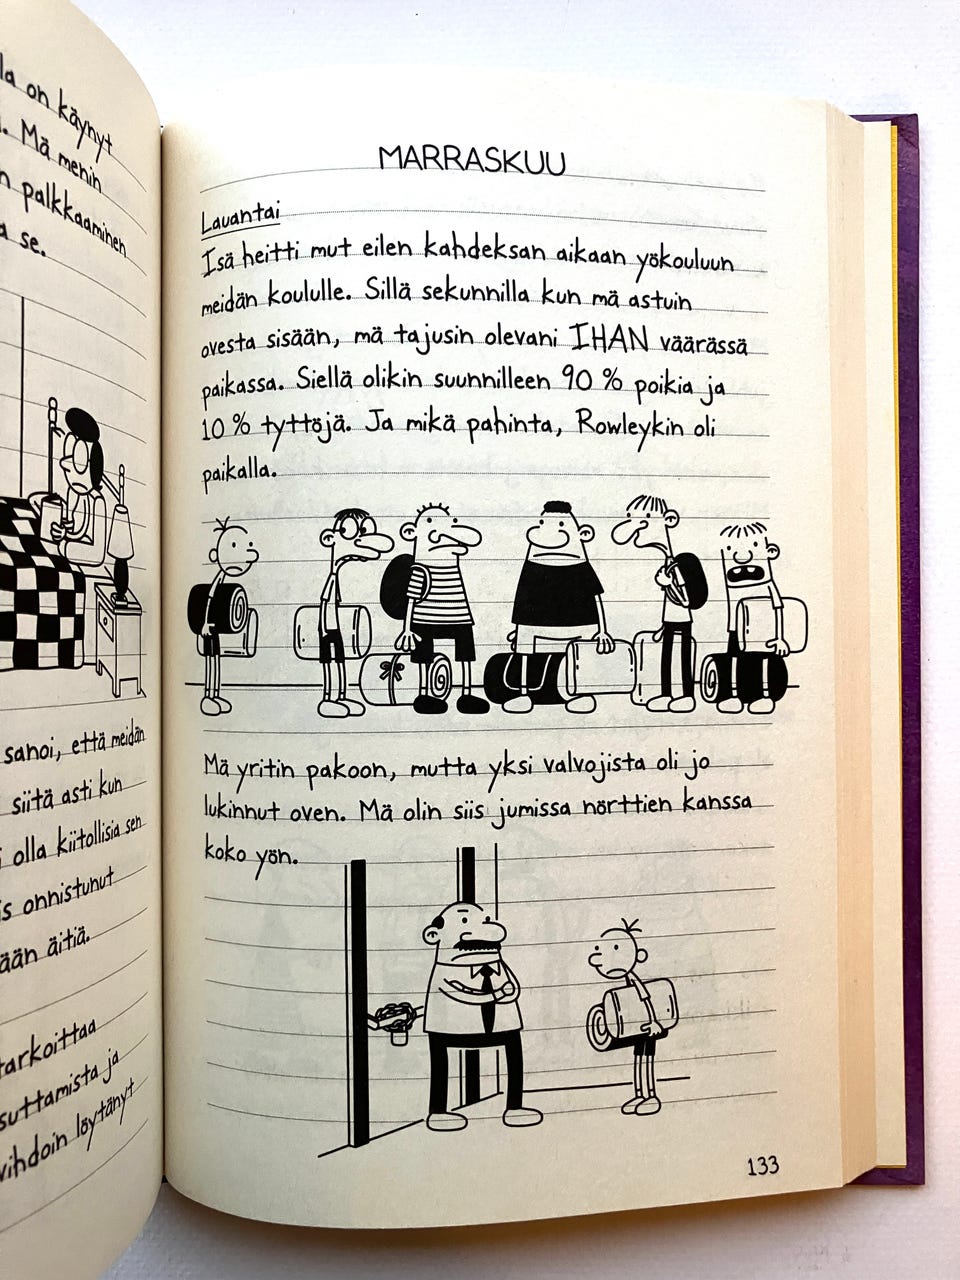 la on käynyt
Mä menin
palkkaaminen
se.
sanoi, että meidän
siitä asti kun
olla kiitollisia sen
onnistunut
äitiä.
tarkoittaa
ja
vihdoin löytänyt
MARRASKUU
Lauantai
Isä heitti mut eilen kahdeksan aikaan yökouluun
meidän koululle. Sillä sekunnilla kun mä astuin
ovesta sisään, mä tajusin olevani IHAN väärässä
paikassa. Siellä olikin suunnilleen 90 % poikia ja
10 % tyttöjä. Ja mikä pahinta, Rowleykin oli
paikalla.
Mä yritin pakoon, mutta yksi valvojista oli jo
lukinnut oven. Mä olin siis jumissa nörttien kanssa
koko yön.
133